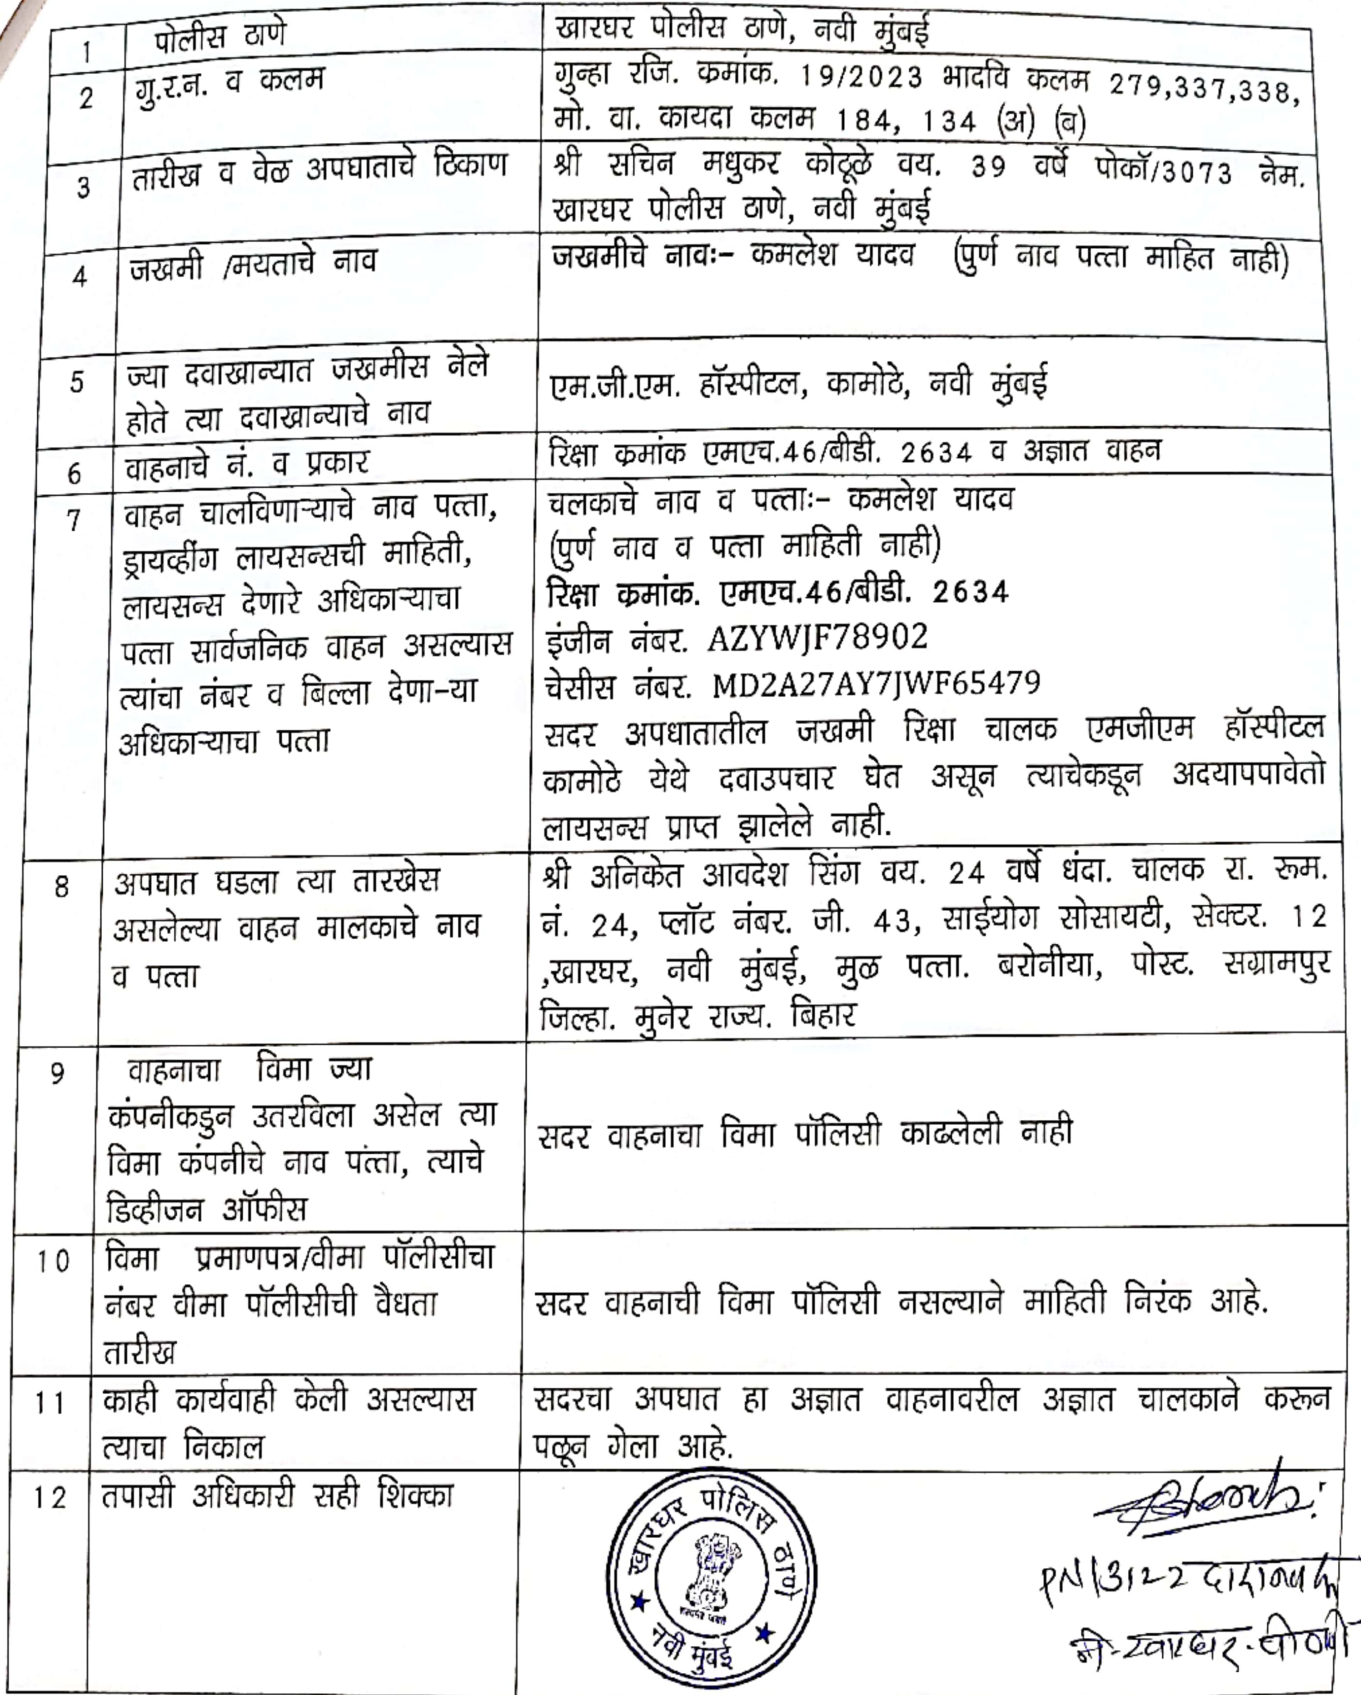 1 पोलीस ठाणे खारघर पोलीस ठाणे, नवी मुंबई
2 गु.र.न. व कलम गुन्हा रजि. क्रमांक. 19/2023 भादवि कलम 279,337,338,
मो. वा. कायदा कलम 184, 134 (अ) (ब)
3 तारीख व वेळ अपघाताचे ठिकाण श्री सचिन मधुकर कोटूळे वय. 39 वर्षे पोकॉ/3073 नेम.
खारघर पोलीस ठाणे, नवी मुंबई
4 जखमी /मयताचे नाव जखमीचे नावः- कमलेश यादव (पुर्ण नाव पत्ता माहित नाही)
5 ज्या दवाखान्यात जखमीस नेले
होते त्या दवाखान्याचे नाव
एम.जी.एम. हॉस्पीटल, कामोठे, नवी मुंबई
6 वाहनाचे नं. व प्रकार रिक्षा क्रमांक एमएच.46/बीडी. 2634 व अज्ञात वाहन
7 वाहन चालविणाऱ्याचे नाव पत्ता,
ड्रायव्हींग लायसन्सची माहिती,
लायसन्स देणारे अधिकाऱ्याचा
पत्ता सार्वजनिक वाहन असल्यास
त्यांचा नंबर व बिल्ला देणा-या
अधिकाऱ्याचा पत्ता
चलकाचे नाव व पत्ताः- कमलेश यादव
(पुर्ण नाव व पत्ता माहिती नाही)
रिक्षा क्रमांक. एमएच.46/बीडी. 2634
इंजीन नंबर. AZYWJF78902
चेसीस नंबर. MD2A27AY7JWF65479
सदर अपधातातील जखमी रिक्षा चालक एमजीएम हॉस्पीटल
कामोठे येथे दवाउपचार घेत असून त्याचेकडून अदयापपावेतो
लायसन्स प्राप्त झालेले नाही.
8 अपघात घडला त्या तारखेस
असलेल्या वाहन मालकाचे नाव
व पत्ता
श्री अनिकेत आवदेश सिंग वय. 24 वर्षे धंदा. चालक रा. रूम.
नं. 24, प्लॉट नंबर. जी. 43, साईयोग सोसायटी, सेक्टर. 12
,खारघर, नवी मुंबई, मुळ पत्ता. बरोनीया, पोस्ट. सग्रामपुर
जिल्हा. मुनेर राज्य. बिहार
9 वाहनाचा विमा ज्या
कंपनीकडुन उतरविला असेल त्या
विमा कंपनीचे नाव पत्ता, त्याचे
डिव्हीजन ऑफीस
सदर वाहनाचा विमा पॉलिसी काढलेली नाही
10 विमा प्रमाणपत्र/वीमा पॉलीसीचा
नंबर वीमा पॉलीसीची वैधता
तारीख
सदर वाहनाची विमा पॉलिसी नसल्याने माहिती निरंक आहे.
11 काही कार्यवाही केली असल्यास
त्याचा निकाल
सदरचा अपघात हा अज्ञात वाहनावरील अज्ञात चालकाने करून
पळून गेला आहे.
12 तपासी अधिकारी सही शिक्का
खारघर पोलिस ठाणे
नवी मुंबई